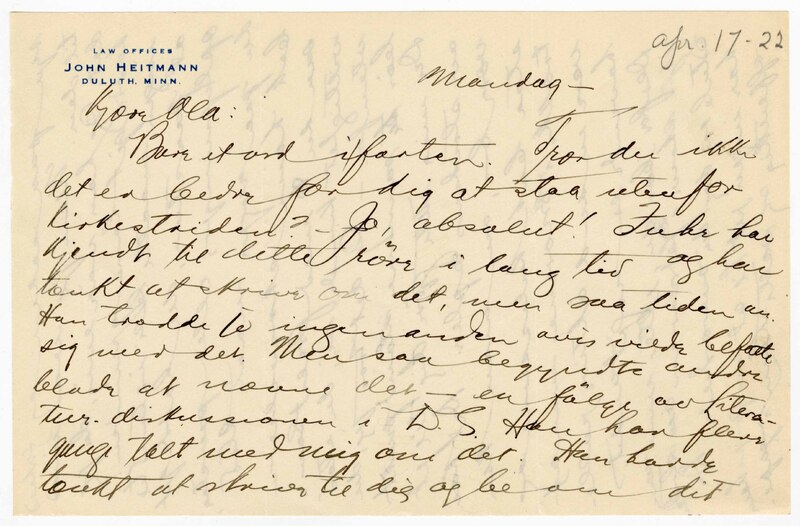 LAW OFFICES
JOHN HEITMANN
DULUTH, MINN.
apr. 17-22
Mandag —
Kjære Ola:
Bare et ord i farten. Tror du ikke
det er bedre for dig at staa utenfor
kirkestriden? – Jo, absolut! Fuhr har
kjendt til dette røre i lang tid og har
tænkt at skrive om det, men saa tiden an.
Han trodde jo ingen anden avis vilde befatte
sig med det. Men saa begyndte andre
blade at nævne det – en følge av Litera-
tur-diskussionen i D. S. Han har flere
gange talt med mig om det. Han hadde
tænkt at skrive til dig og be om dit